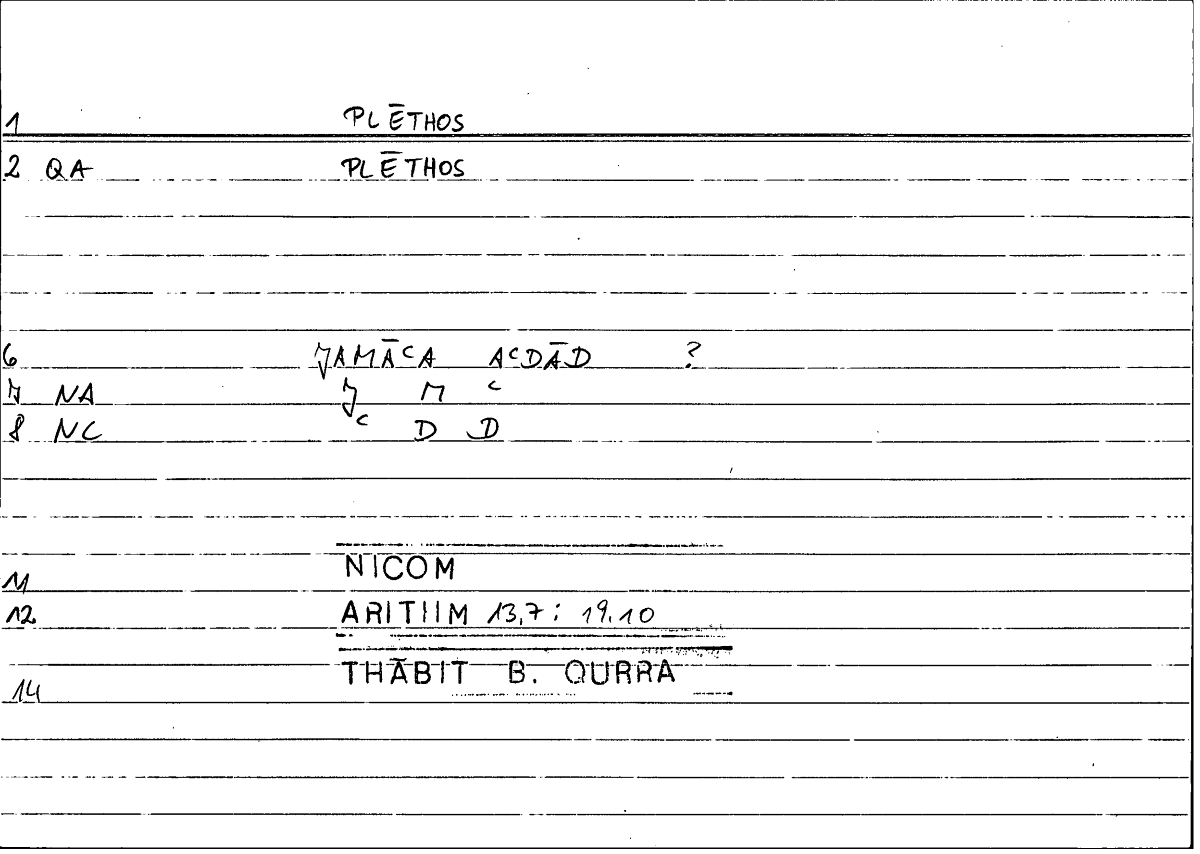 1 PLĒTHOS
2 QA PLĒTHOS
6 JAMĀCA ACDĀD ?
7 NA J M C
8 NC C D D
11 NICOM
12 ARITIIM 13,7 : 19.10
THĀBIT B. QURRA
14